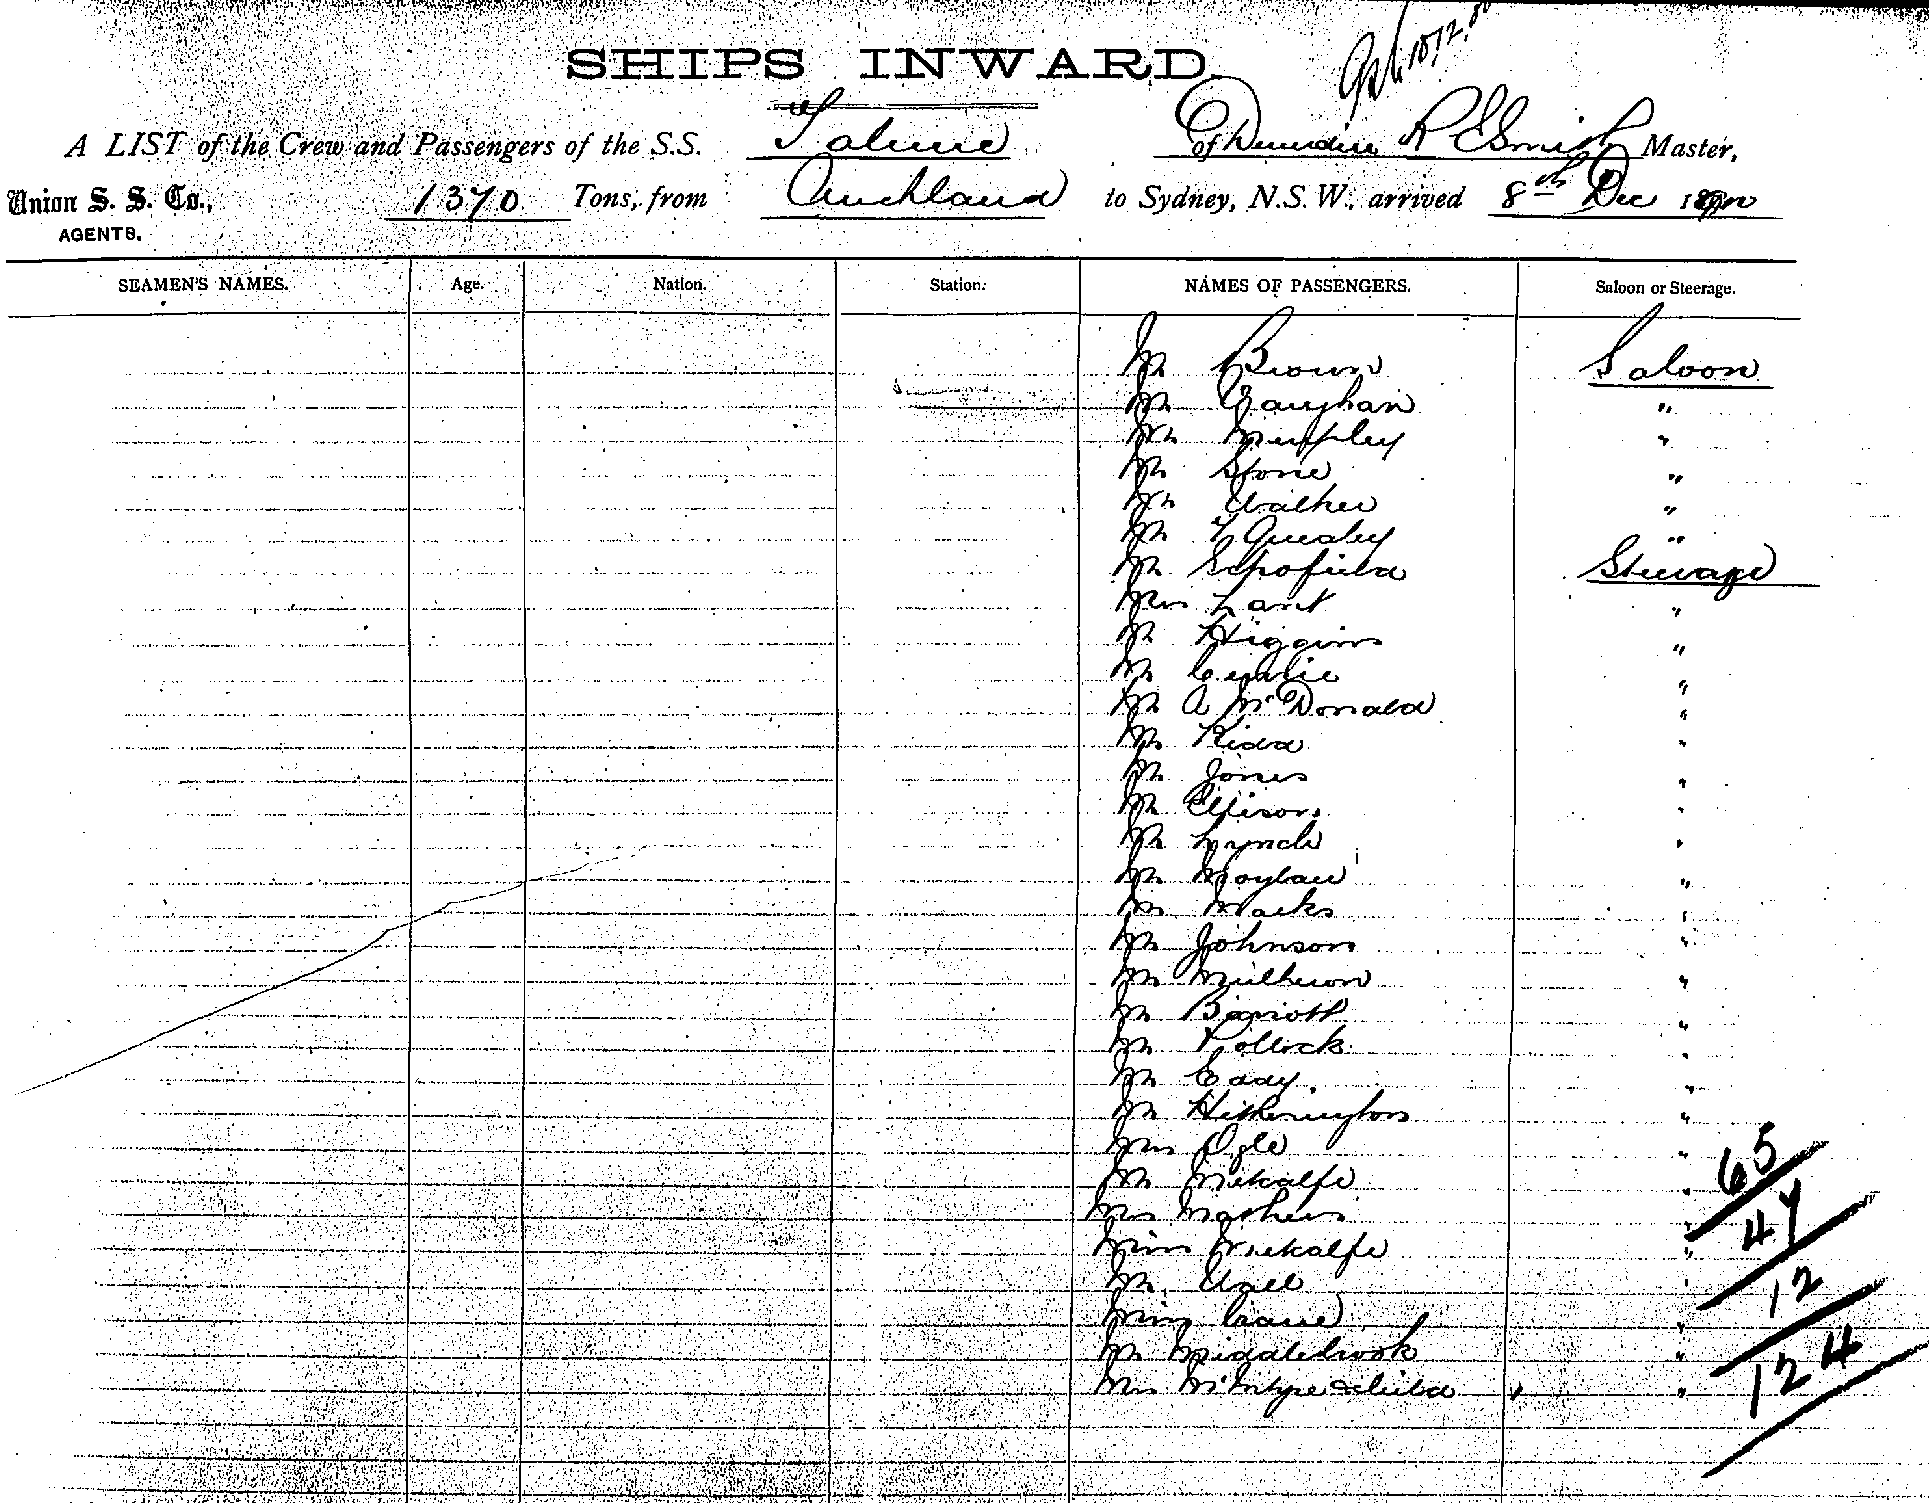 SHIPS INWARD.
A LIST of the Crew and Passengers of the S.S. "Talune of Dunedin R E Smith Master,
Union S. S. Co., AGENTS. 1370 Tons, from Auckland to Sydney, N.S.W., arrived 8th Dec
SEAMEN'S NAMES. Age. Nation. Station. NAMES OF PASSENGERS. Saloon or Steerage.
Mr Brown Saloon
Mr Vaughan "
Mr "
Mr Stone "
Mr Walker "
Mr "
Mr Schofield Steerage
Mrs Lant "
Mr Higgins "
Mr "
Mr A McDonald "
Mr Kidd "
Mr Jones "
Mr Ellison "
Mr Lynch "
Mr Moylan "
Mr Marks "
Mr Johnson "
Mr "
Mr "
Mr Pollock "
Mr Eddy "
Mr Hetherington "
Mrs Ogle "
Mr Metcalfe "
Mrs Mathews "
Miss Metcalfe "
Mr Wall "
Miss "
Mr Middlebrook "
Mrs McIntyre & child "
65
47
12
124